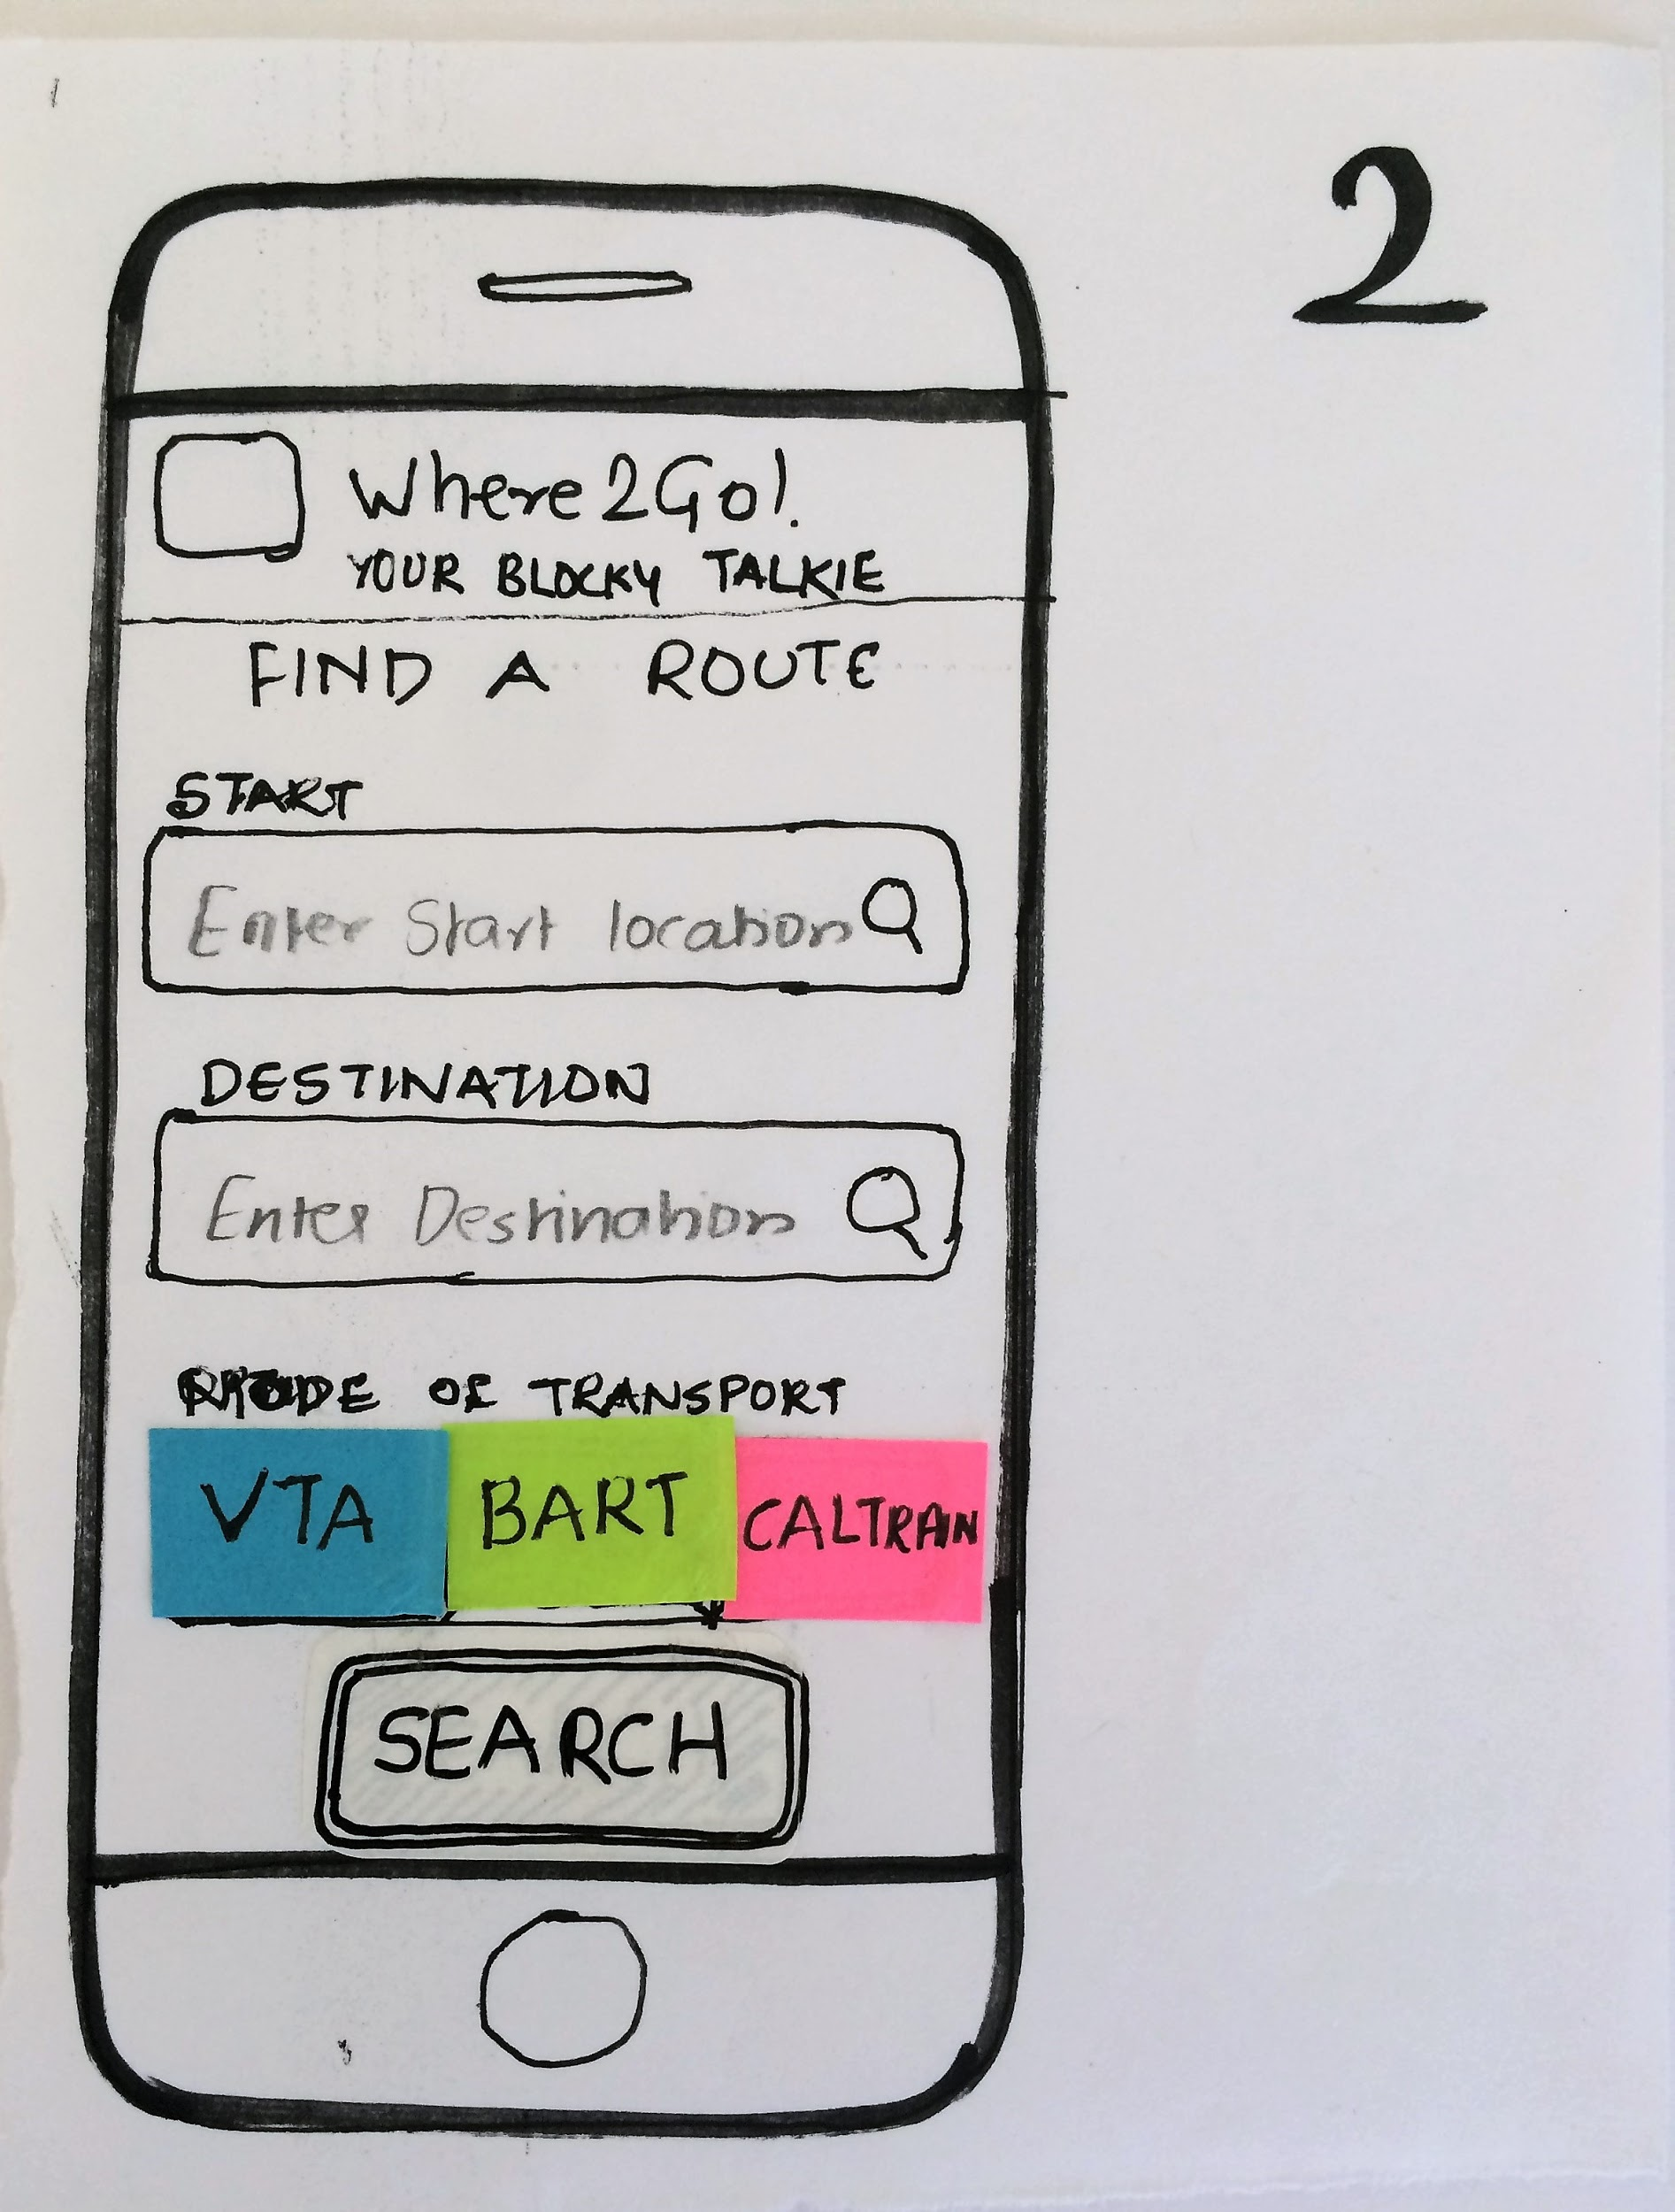 2
Where2Go!
YOUR BLOCKY TALKIE
FIND A ROUTE
START
Enter Start location
DESTINATION
Enter Destination
MODE OF TRANSPORT
VTA BART CALTRAIN
SEARCH